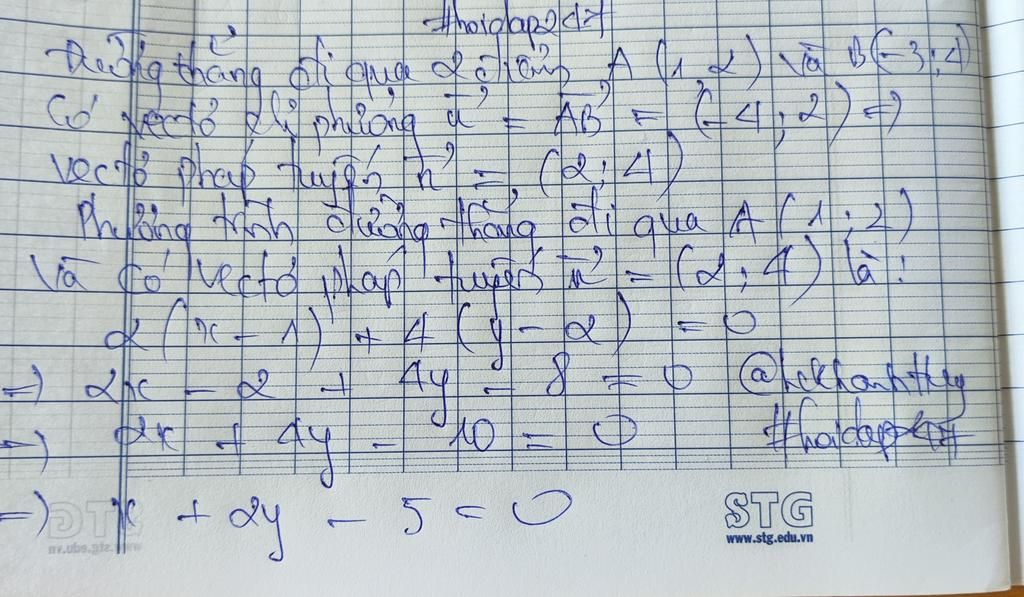 #hoidap247
Đường thẳng đi qua 2 điểm A (1, 2) và B(-3; 4)
Có vectơ chỉ phương u = AB = (-4; 2) =>
vectơ pháp tuyến n = (2; 4)
Phương trình đường thẳng đi qua A (1; 2)
Và có vectơ pháp tuyến n = (2; 4) là:
2(x - 1) + 4(y - 2) = 0
=> 2x - 2 + 4y - 8 = 0
=> 2x + 4y - 10 = 0
=> x + 2y - 5 = 0
STG
www.stg.edu.vn